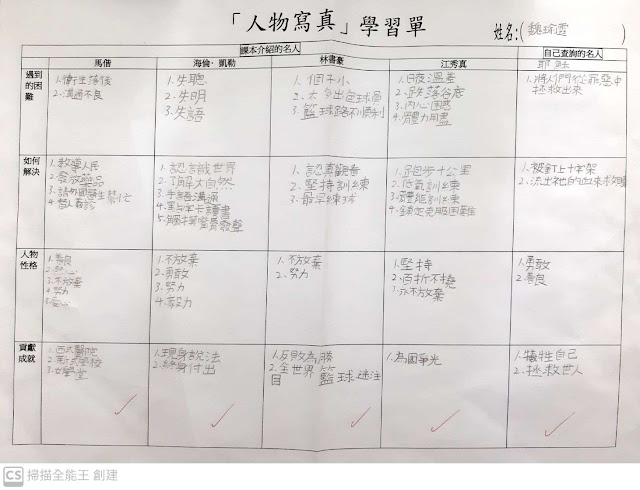 「人物寫真」學習單
姓名:(魏瑜霞)
課本介紹的名人
自己查詢的名人
馬偕
海倫·凱勒
林書豪
江秀真
耶穌
遇到的困難
1.衛生落後
2.溝通不良
1.失聰
2.失明
3.失語
1.個子小
2.太多出包球員
3.籃球路不順利
1.日夜溫差
2.跌落谷底
3.內心困惑
4.體力用盡
1.將人們從罪惡中
拯救出來
如何解決
1.教導人民
2.發放藥品
3.請外國醫生幫忙
4.替人看診
1.認識世界
2.了解大自然
3.手語溝通
4.點字卡讀書
1.認真觀看
2.堅持訓練
3.最早練球
1.跑步十公里
2.低氣訓練
3.體能訓練
4.鎮定克服困難
1.被釘上十字架
人物性格
1.善良
2.熱心
3.不放棄
4.努力
5.愛心
1.不放棄
2.勇敢
3.努力
4.毅力
1.不放棄
2.努力
1.堅持
2.百折不撓
3.永不放棄
1.勇敢
2.善良
貢獻成就
1.西式醫院
2.新式學校
3.女學堂
1.現身說法
2.終身付出
1.反敗為勝
2.全世界籃球迷注
目
1.為國爭光
1.犧牲自己
2.拯救世人
CS 掃描全能王 創建